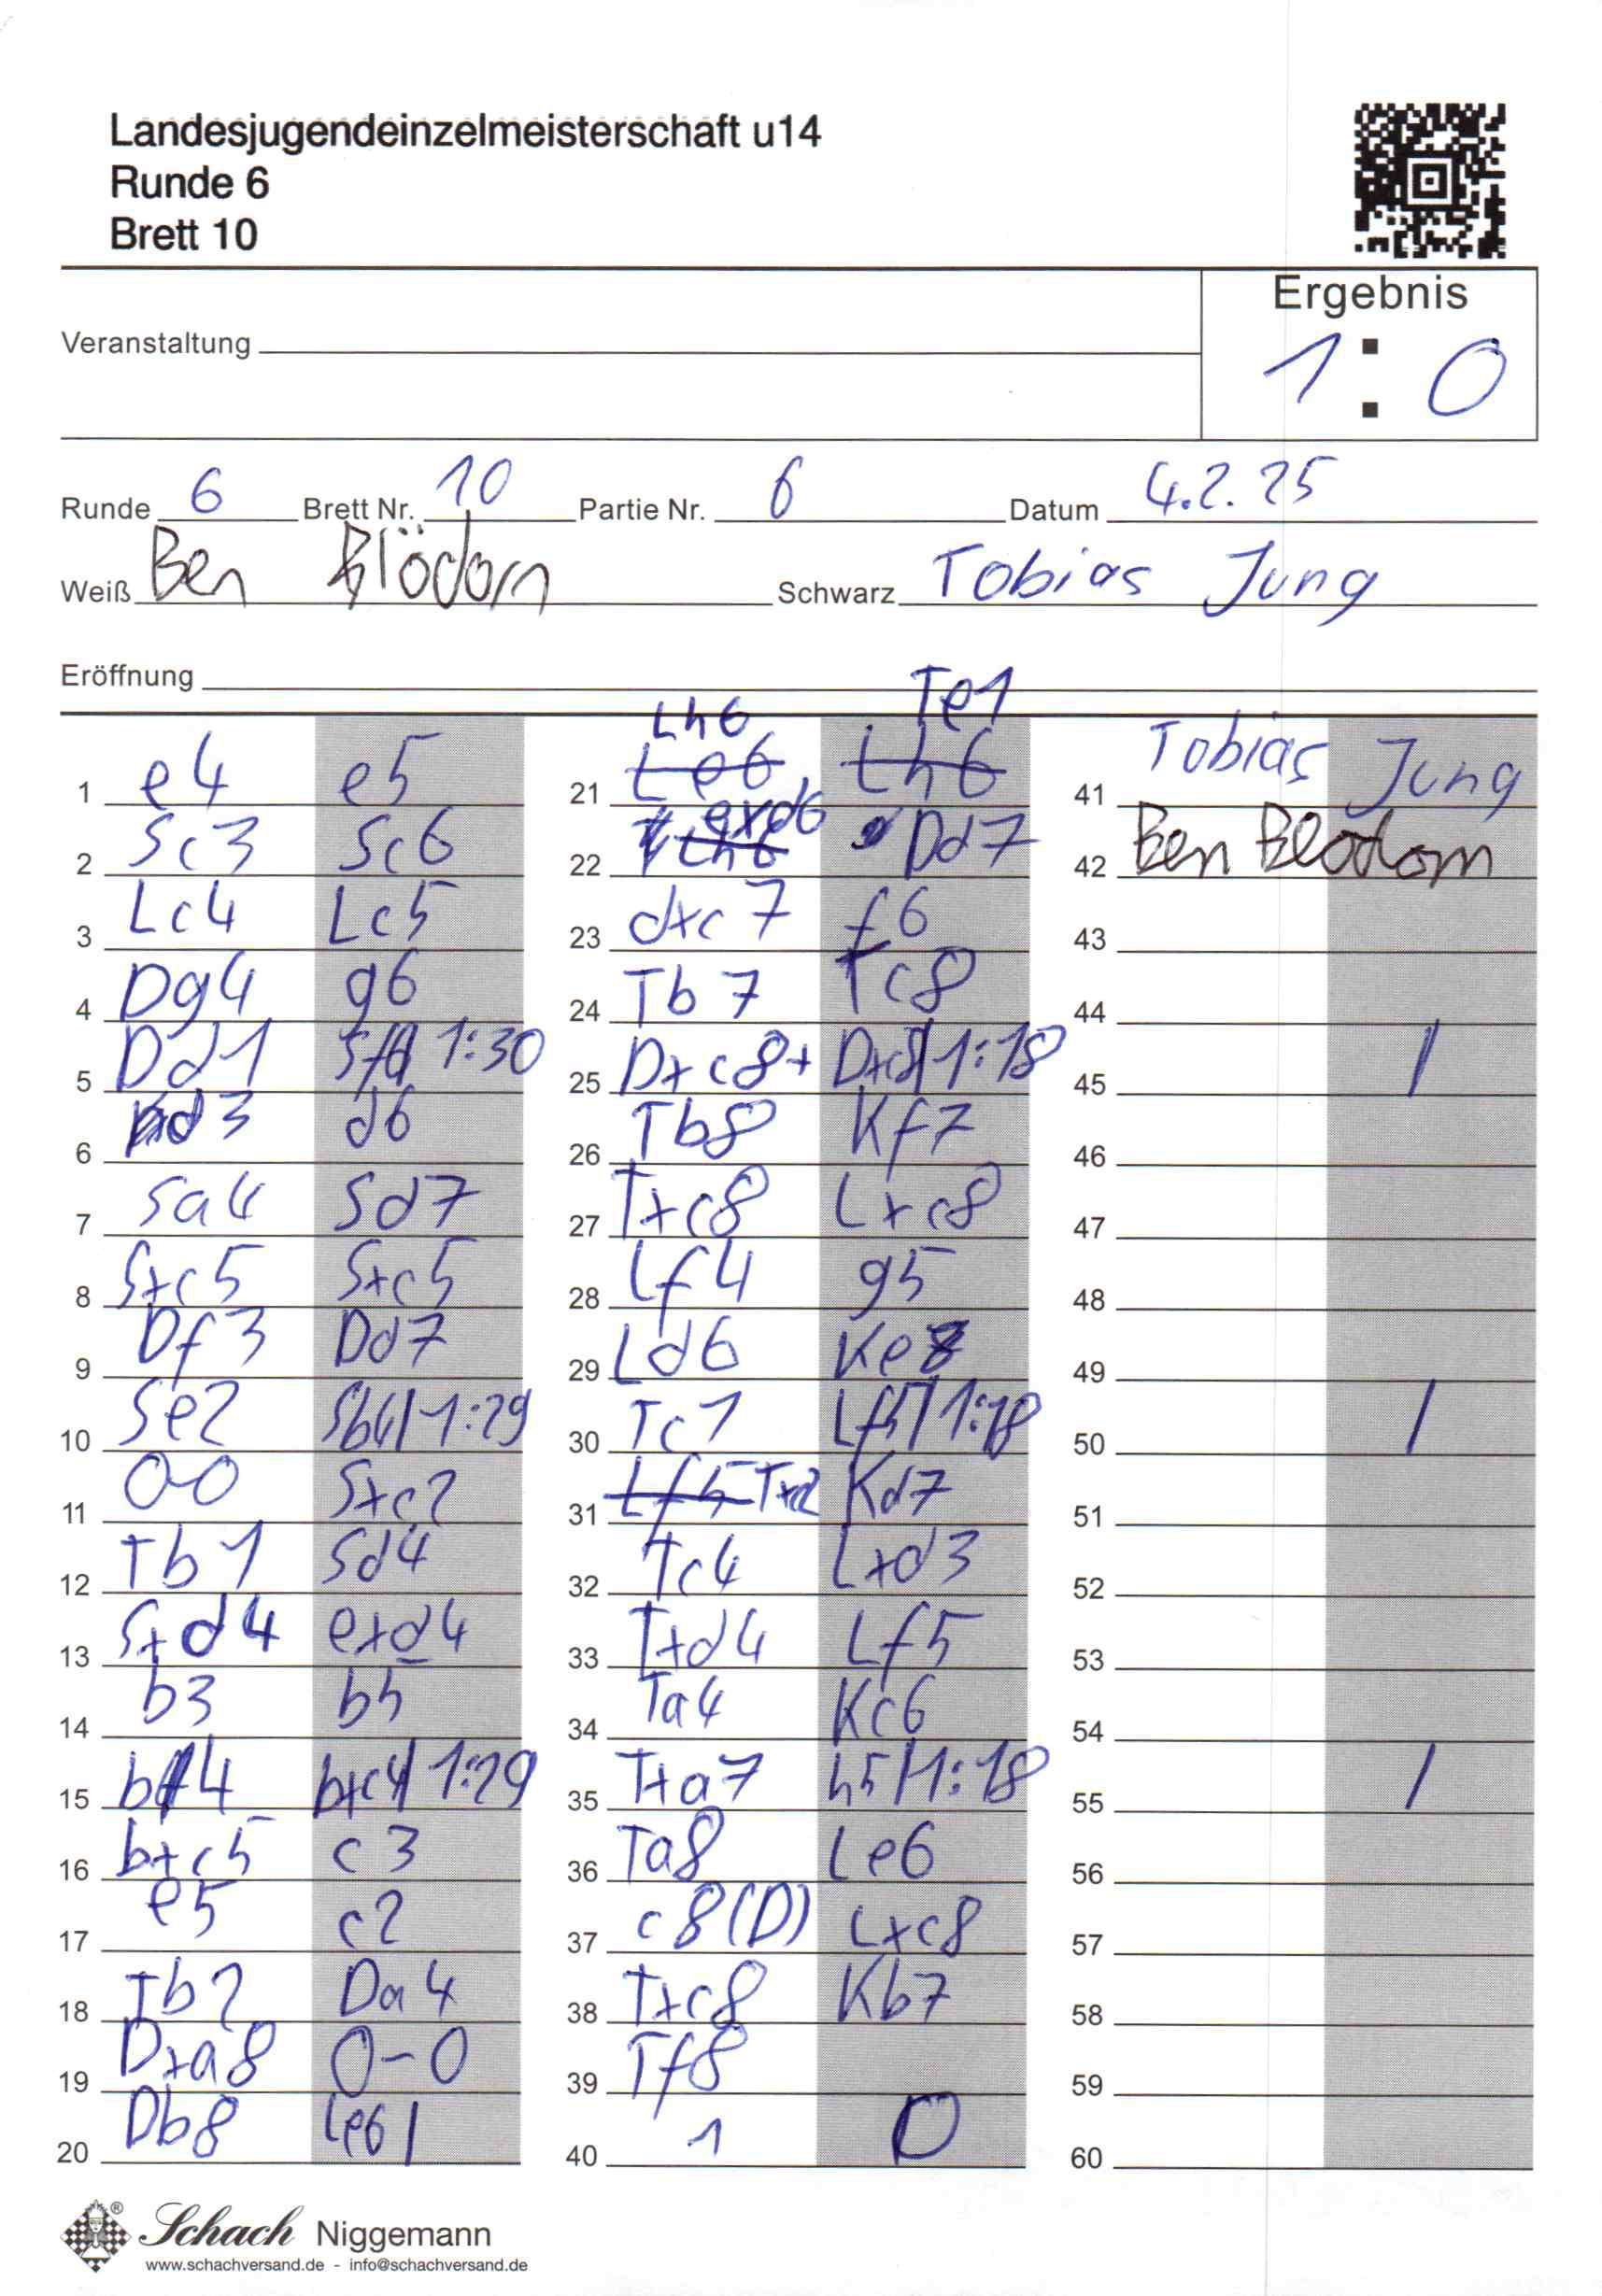 Landesjugendeinzelmeisterschaft u14
Runde 6
Brett 10
Ergebnis
1 : 0
Veranstaltung
Runde 6 Brett Nr. 10 Partie Nr. 6 Datum 4.2.25
Weiß Ben Blödorn Schwarz Tobias Jung
Eröffnung
1 e4 e5
2 Sc3 Sc6
3 Lc4 Lc5
4 Dg4 g6
5 Dd1 Sf6 1:30
6 d3 d6
7 Sa4 Sd7
8 Sxc5 Sxc5
9 Df3 Dd7
10 Se2 Sb4 | 1:29
11 0-0 Sxc2
12 Tb1 Sd4
13 Sxd4 exd4
14 b3 b5
15 b4 bxc4 | 1:29
16 bxc5 c3
17 e5 c2
18 Tb2 Da4
19 Dxa8 0-0
20 Db8 Le6 |
Lh6 Te1
21 Le6 Lh6
22 Lh6 exd6 Dd7
23 dxc7 f6
24 Tb7 Tc8
25 Dxc8+ Dxc8 | 1:18
26 Tb8 Kf7
27 Txc8 Lxc8
28 Lf4 g5
29 Ld6 Ke8
30 Tc1 Lf5 | 1:18
31 Lf5 Txc2 Kd7
32 Tc4 Lxd3
33 Txd4 Lf5
34 Ta4 Kc6
35 Txa7 h5 | 1:18
36 Ta8 Le6
37 c8(D) Lxc8
38 Txc8 Kb7
39 Tf8
40 1 0
41 Tobias Jung
42 Ben Blödorn
43
44
45 |
46
47
48
49
50 |
51
52
53
54
55 |
56
57
58
59
60
Schach Niggemann
www.schachversand.de - info@schachversand.de